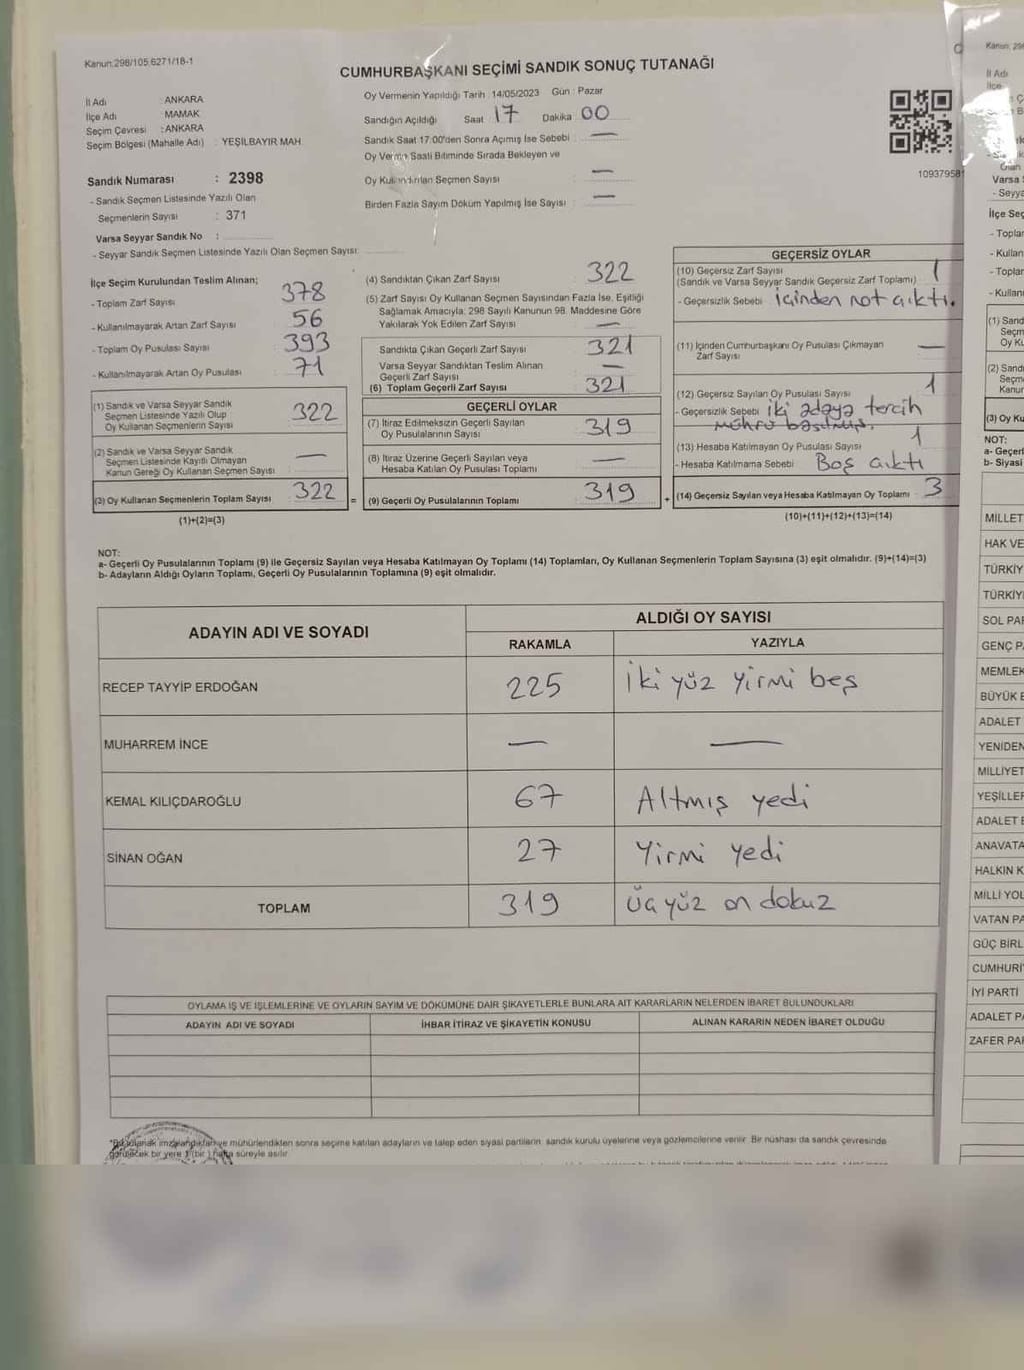 Kanun:298/105;6271/18-1
CUMHURBAŞKANI SEÇİMİ SANDIK SONUÇ TUTANAĞI
İl Adı : ANKARA
İlçe Adı : MAMAK
Seçim Çevresi : ANKARA
Seçim Bölgesi (Mahalle Adı) : YEŞİLBAYIR MAH.
Oy Vermenin Yapıldığı Tarih :14/05/2023 Gün : Pazar
Sandığın Açıldığı Saat : 17 Dakika : 00
Sandık Saat 17:00'den Sonra Açımış İse Sebebi : —
Oy Verme Saati Bitiminde Sırada Bekleyen ve
Oy Kullandırılan Seçmen Sayısı : —
Birden Fazla Sayım Döküm Yapılmış İse Sayısı : —
109379581
Sandık Numarası : 2398
- Sandık Seçmen Listesinde Yazılı Olan
Seçmenlerin Sayısı : 371
Varsa Seyyar Sandık No :
- Seyyar Sandık Seçmen Listesinde Yazılı Olan Seçmen Sayısı:
İlçe Seçim Kurulundan Teslim Alınan;
- Toplam Zarf Sayısı : 378
- Kullanılmayarak Artan Zarf Sayısı : 56
- Toplam Oy Pusulası Sayısı : 393
- Kullanılmayarak Artan Oy Pusulası : 71
(1) Sandık ve Varsa Seyyar Sandık
Seçmen Listesinde Yazılı Olup
Oy Kullanan Seçmenlerin Sayısı : 322
(2) Sandık ve Varsa Seyyar Sandık
Seçmen Listesinde Kayıtlı Olmayan
Kanun Gereği Oy Kullanan Seçmen Sayısı : —
(3) Oy Kullanan Seçmenlerin Toplam Sayısı : 322
(1)+(2)=(3)
(4) Sandıktan Çıkan Zarf Sayısı : 322
(5) Zarf Sayısı Oy Kullanan Seçmen Sayısından Fazla İse, Eşitliği
Sağlamak Amacıyla; 298 Sayılı Kanunun 98. Maddesine Göre
Yakılarak Yok Edilen Zarf Sayısı : —
Sandıkta Çıkan Geçerli Zarf Sayısı : 321
Varsa Seyyar Sandıktan Teslim Alınan
Geçerli Zarf Sayısı : —
(6) Toplam Geçerli Zarf Sayısı : 321
GEÇERLİ OYLAR
(7) İtiraz Edilmeksizin Geçerli Sayılan
Oy Pusulalarının Sayısı : 319
(8) İtiraz Üzerine Geçerli Sayılan veya
Hesaba Katılan Oy Pusulası Toplamı : —
= (9) Geçerli Oy Pusulalarının Toplamı : 319
GEÇERSİZ OYLAR
(10) Geçersiz Zarf Sayısı : 1
(Sandık ve Varsa Seyyar Sandık Geçersiz Zarf Toplamı)
- Geçersizlik Sebebi : içinden not çıktı.
(11) İçinden Cumhurbaşkanı Oy Pusulası Çıkmayan
Zarf Sayısı : —
(12) Geçersiz Sayılan Oy Pusulası Sayısı : 1
- Geçersizlik Sebebi : iki adaya tercih
mührü basılmış.
(13) Hesaba Katılmayan Oy Pusulası Sayısı : 1
- Hesaba Katılmama Sebebi : Boş çıktı
+ (14) Geçersiz Sayılan veya Hesaba Katılmayan Oy Toplamı : 3
(10)+(11)+(12)+(13)=(14)
NOT:
a- Geçerli Oy Pusulasının Toplamı (9) ile Geçersiz Sayılan veya Hesaba Katılmayan Oy Toplamı (14) Toplamları, Oy Kullanan Seçmenlerin Toplam Sayısına (3) eşit olmalıdır. (9)+(14)=(3)
b- Adayların Aldığı Oyların Toplamı, Geçerli Oy Pusulalarının Toplamına (9) eşit olmalıdır.
ADAYIN ADI VE SOYADI
ALDIĞI OY SAYISI
RAKAMLA YAZIYLA
RECEP TAYYİP ERDOĞAN 225 İki yüz yirmi beş
MUHARREM İNCE — —
KEMAL KILIÇDAROĞLU 67 Altmış yedi
SİNAN OĞAN 27 Yirmi yedi
TOPLAM 319 Üç yüz on dokuz
OYLAMA İŞ VE İŞLEMLERİNE VE OYLARIN SAYIM VE DÖKÜMÜNE DAİR ŞİKAYETLERLE BUNLARA AİT KARARLARIN NELERDEN İBARET BULUNDUKLARI
ADAYIN ADI VE SOYADI İHBAR İTİRAZ VE ŞİKAYETİN KONUSU ALINAN KARARIN NEDEN İBARET OLDUĞU
imzalandıktan ve mühürlendikten sonra seçime katılan adayların ve talep eden siyasi partilerin, sandık kurulu üyelerine veya gözlemcilerine verilir. Bir nüshası da sandık çevresinde
görülecek bir yere 1 (bir) hafta süreyle asılır.
Kanun: 298
İl Adı
İlçe
Varsa S
- Seyya
İlçe Seç
- Toplar
- Kullan
- Toplar
- Kullanı
(1) Sand
Seçm
Oy Ku
(2) Sandı
Seçme
Kanur
(3) Oy Ku
NOT:
a- Geçerl
b- Siyasi
MİLLET
HAK VE
TÜRKİY
TÜRKİYE
SOL PAR
GENÇ PA
MEMLEK
BÜYÜK B
ADALET
YENİDEN
MİLLİYET
YEŞİLLER
ADALET B
ANAVATA
HALKIN K
MİLLİ YOL
VATAN PA
GÜÇ BİRL
CUMHURİY
İYİ PARTİ
ADALET PA
ZAFER PAR